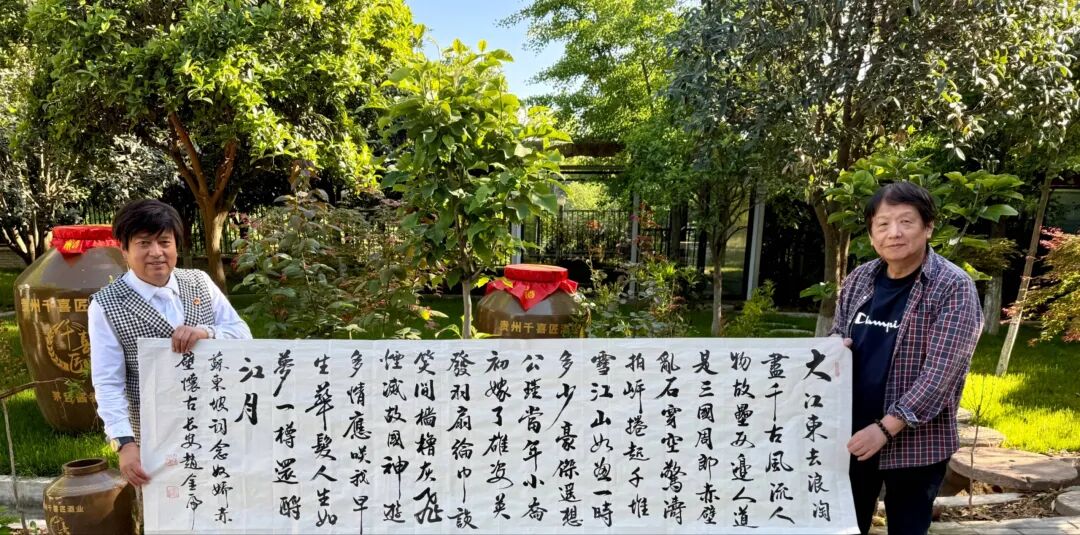 大江東去浪淘
盡千古風流人
物故壘西邊人道
是三國周郎赤壁
亂石穿空驚濤
拍岸捲起千堆
雪江山如畫一時
多少豪傑遥想
公瑾當年小喬
初嫁了雄姿英
發羽扇綸巾談
笑間檣櫓灰飛
煙滅故國神遊
多情應咲我早
生華髮人生如
夢一樽還酹
江月
蘇東坡詞念奴嬌赤
壁懷古長安趙金
贵州千喜匠
贵州千喜匠酒业
千喜匠酒业
Champi